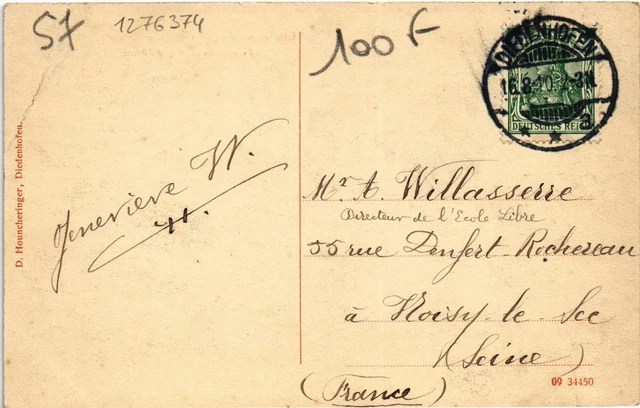 57
1276374
100 F
DIEDENHOFEN
16.8.10.
a
DEUTSCHES REICH
D. Houncheringer, Diedenhofen.
Jenevieve W.
Mr A. Willasserre
Directeur de l'Ecole Libre
55 rue Denfert Rochereau
à Noisy-le-Sec
(Seine)
(France)
09 34450